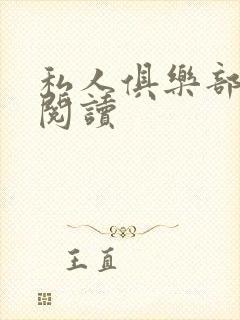 私人俱樂部
閱讀
王直